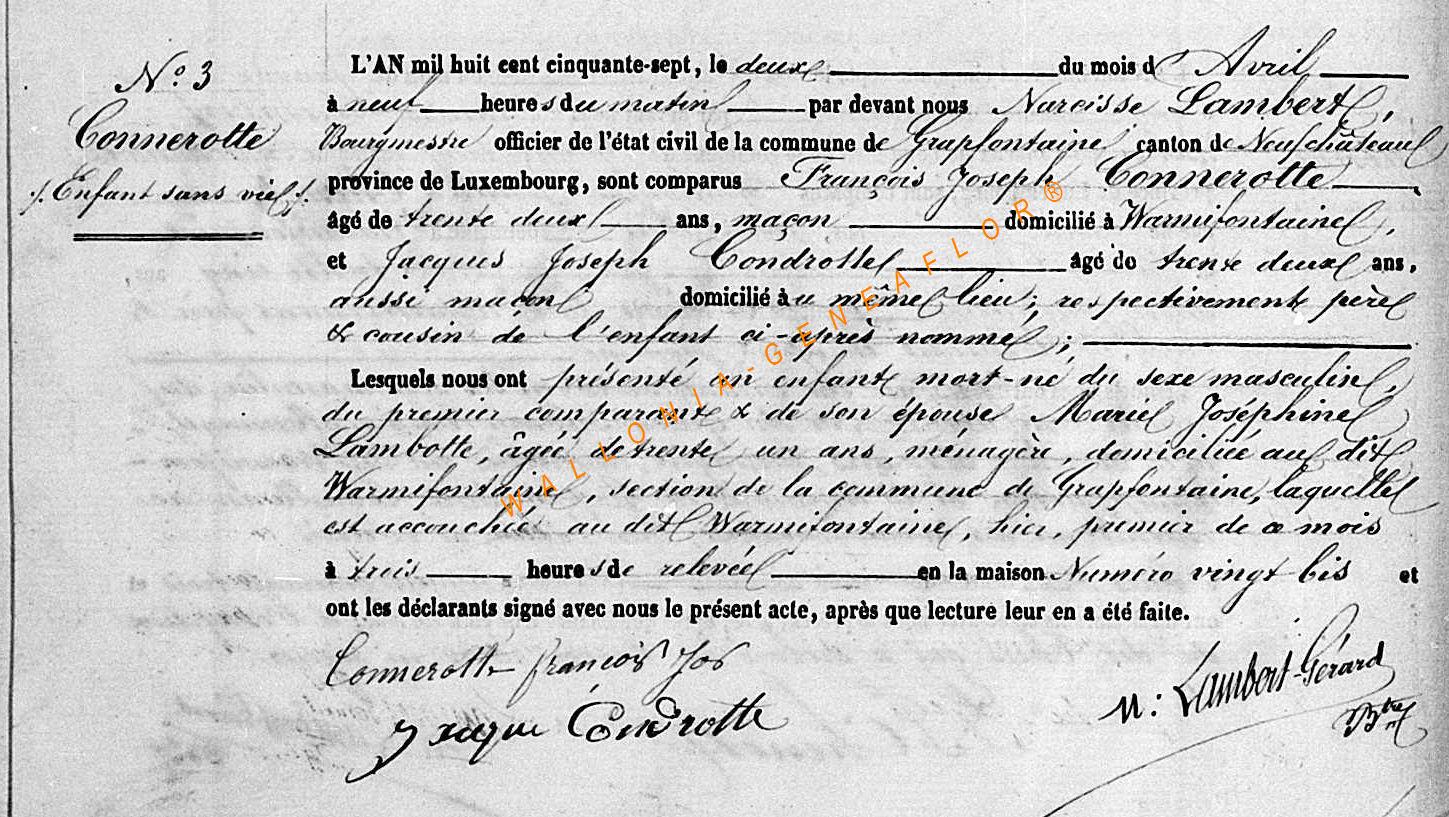 N.º 3
Connerotte
./. Enfant sans vie ./.
L'AN mil huit cent cinquante-sept, le deux du mois d' Avril
à neuf heures du matin par devant nous Narcisse Lambert,
Bourgmestre officier de l'état civil de la commune de Grapfontaine canton de Neufchâteau
province de Luxembourg, sont comparus François Joseph Connerotte,
âgé de trente deux ans, maçon domicilié à Warmifontaine,
et Jacques Joseph Condrotte âgé de trente deux ans,
aussi maçon domicilié au même lieu; respectivement père
& cousin de l'enfant ci-après nommé;
Lesquels nous ont présenté un enfant mort-né du sexe masculin,
du premier comparant & de son épouse Marie Joséphine
Lambotte, âgée de trente un ans, ménagère, domiciliée au dit
Warmifontaine, section de la commune de Grapfontaine, laquelle
est accouchée au dit Warmifontaine, hier, premier de ce mois
à trois heures de relevée en la maison Numéro vingt bis et
ont les déclarants signé avec nous le présent acte, après que lecture leur en a été faite.
Connerotte françois Jos
Jacque Condrotte
N: Lambert-Gérard
Btre
WALLONIA-GENEAFLOR®